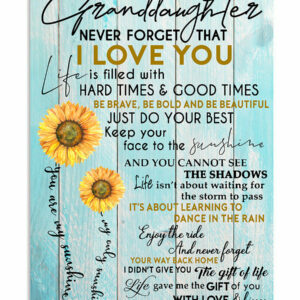 Granddaughter
NEVER FORGET THAT
I LOVE YOU
Life is filled with
HARD TIMES & GOOD TIMES
BE BRAVE, BE BOLD AND BE BEAUTIFUL
JUST DO YOUR BEST
Keep your
face to the sunshine
AND YOU CANNOT SEE
THE SHADOWS
Life isn't about waiting for
the storm to pass
IT'S ABOUT LEARNING TO
DANCE IN THE RAIN
Enjoy the ride
And never forget
YOUR WAY BACK HOME
I DIDN'T GIVE YOU The gift of life
Life gave me the GIFT OF YOU
WITH LOVE
you are my sunshine
my only sunshine